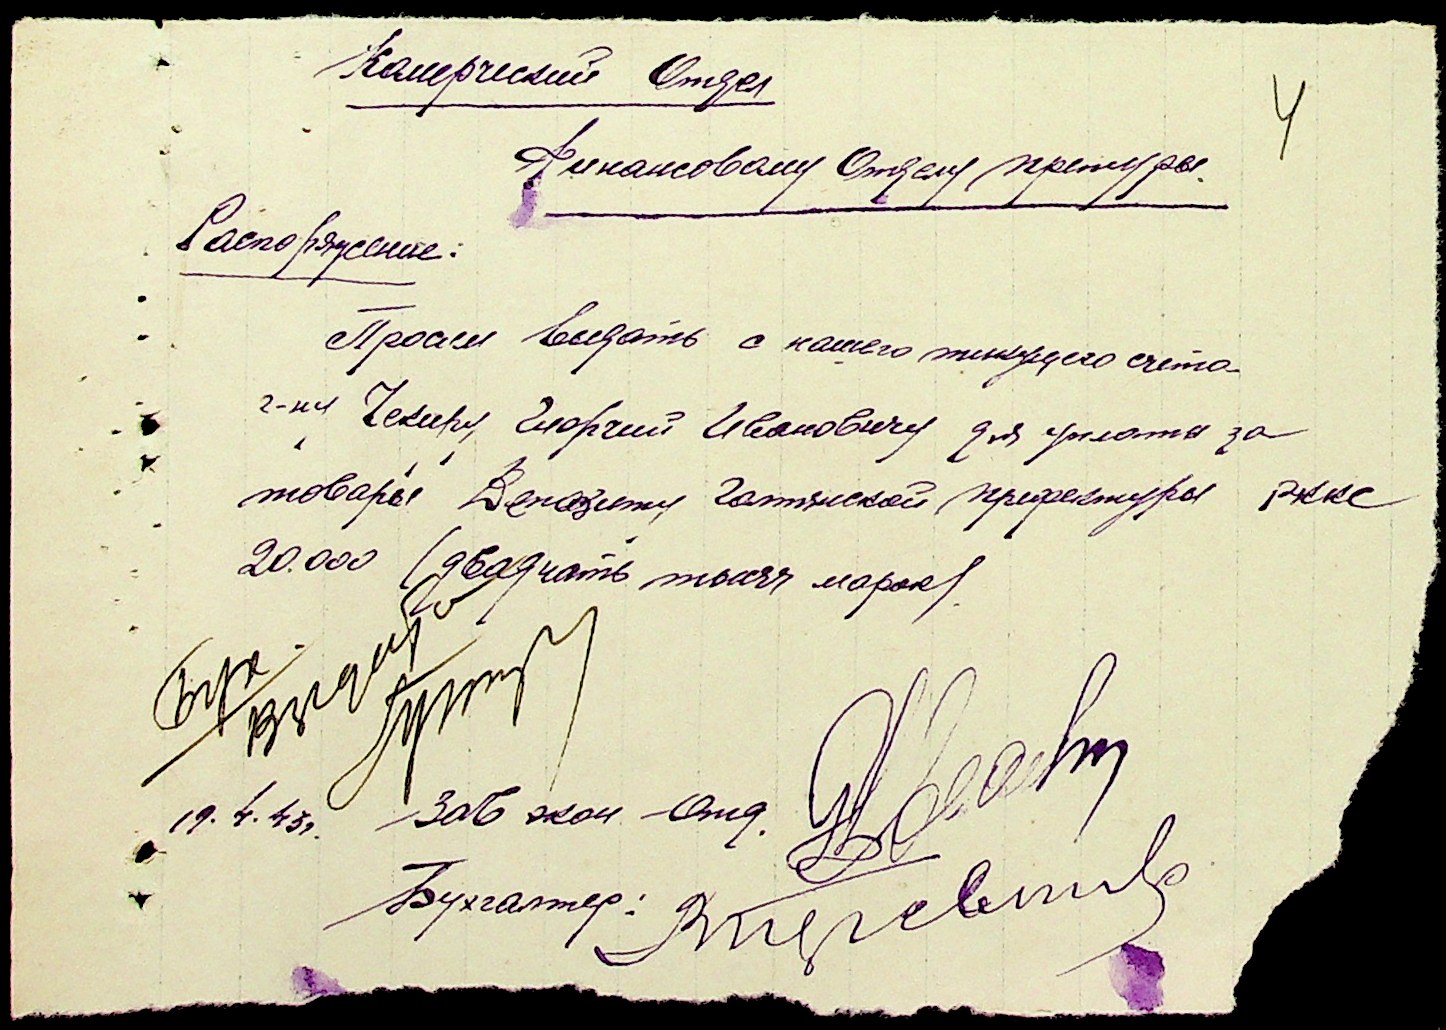 Комерческий Отдел
4
Финансовому Отделу претуры.
Распоряжение:
Просим выдать с нашего текущего счета
г-ну Чекиру, Георгий Ивановичу для уплаты за
товары Депозиту Голтянской префектуры РККС
20.000 (двадцать тысяч марок).
Бух.
Выдать
19.4.43г. Зав экон Отд.
Бухгалтер: